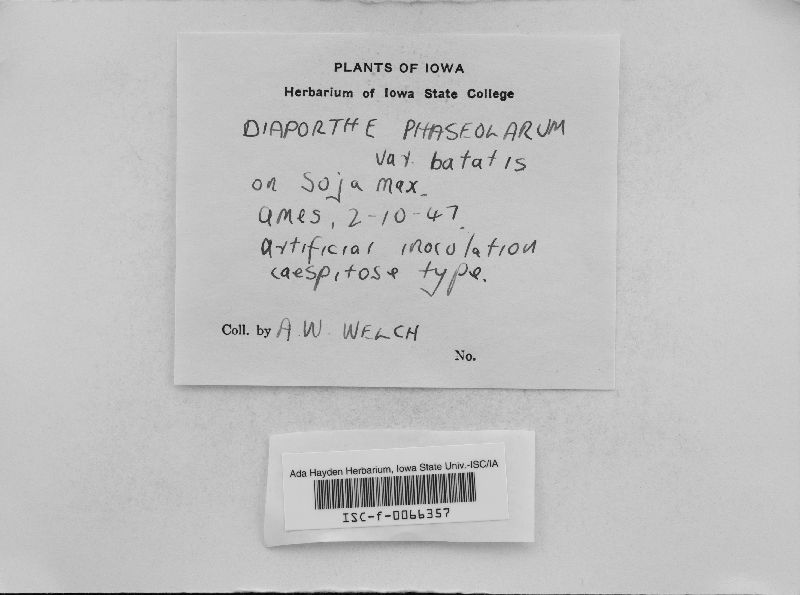 PLANTS OF IOWA
Herbarium of Iowa State College
DIAPORTHE PHASEOLARUM
var. batatis
on Soja max.
Ames, 2-10-47.
Artificial inoculation
caespitose type.
Coll. by A. W. WELCH
No.
Ada Hayden Herbarium, Iowa State Univ.-ISC/IA
ISC-f-0066357